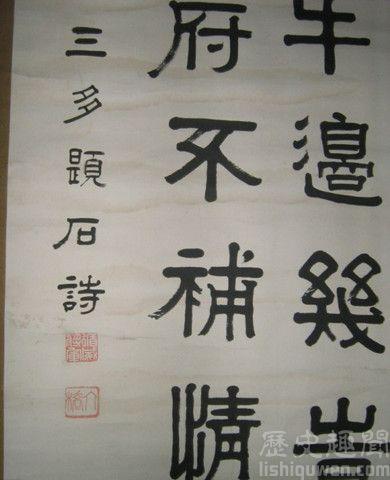 牛邊幾
府不補情
三多題石詩
歷史趣聞
lishiquwen.com